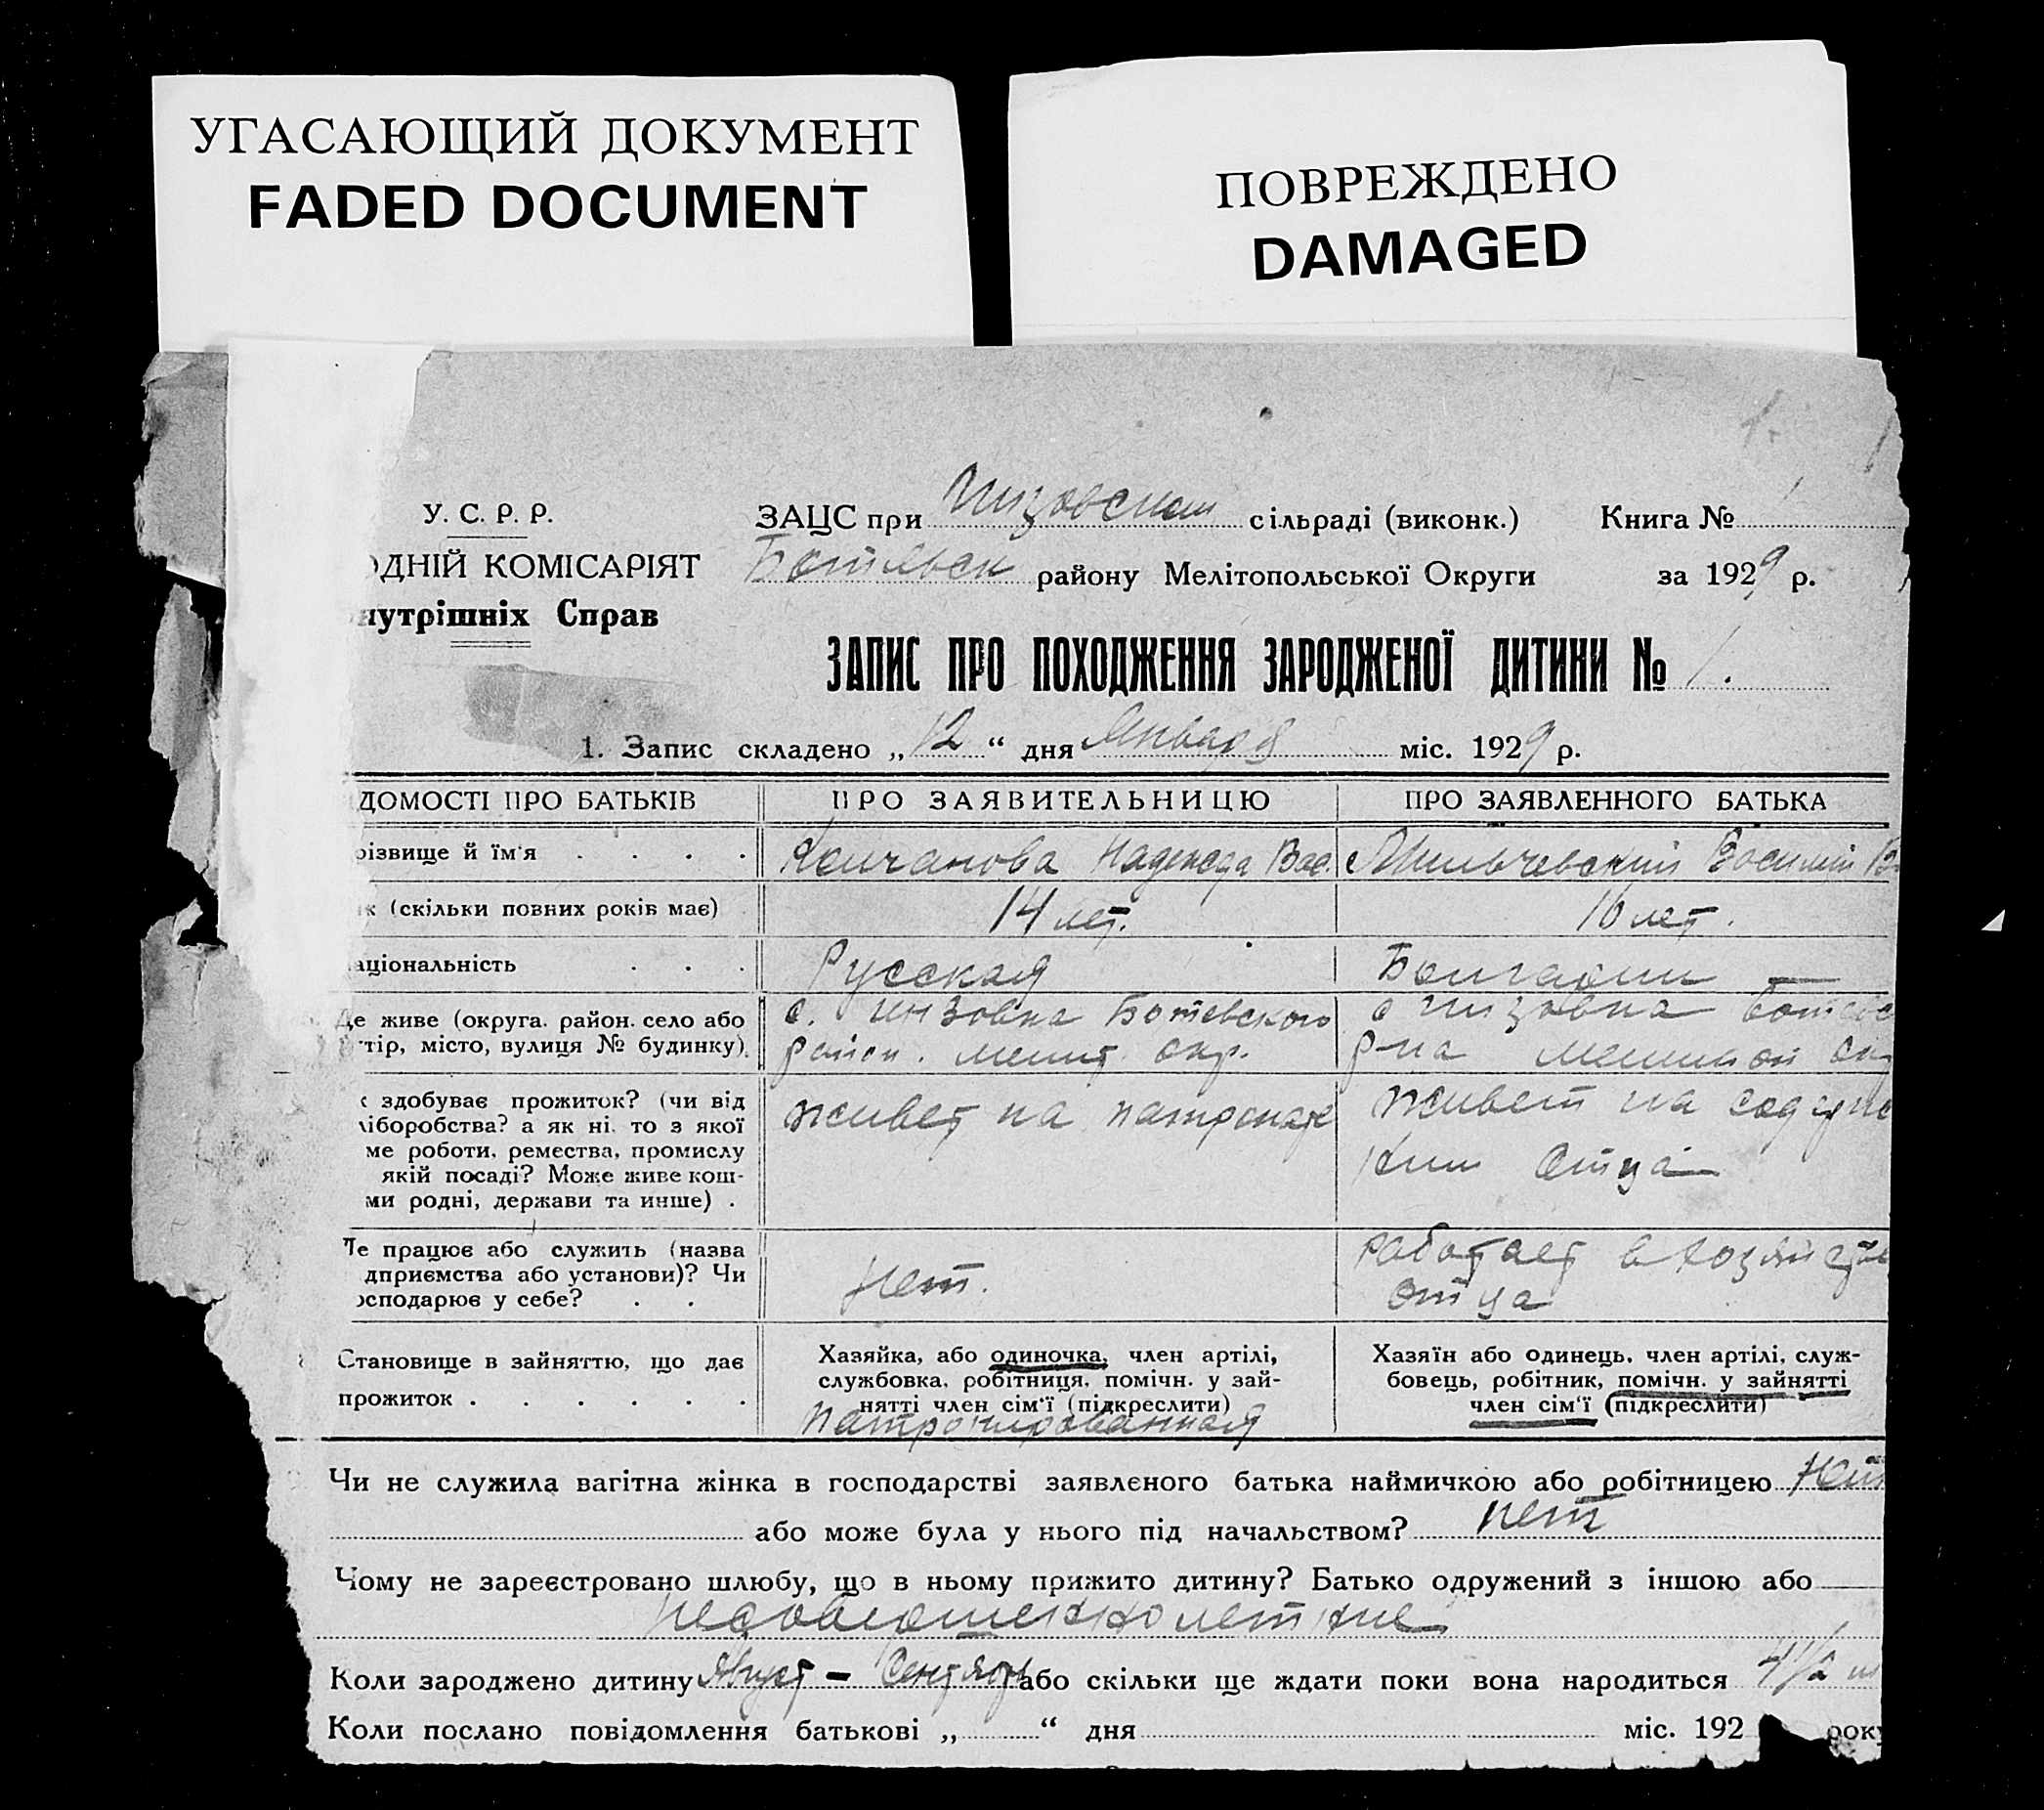 УГАСАЮЩИЙ ДОКУМЕНТ
FADED DOCUMENT
ПОВРЕЖДЕНО
DAMAGED
1.
У. С. Р. Р.
ОДНІЙ КОМІСАРІЯТ
нутрішніх Справ
ЗАЦС при сільраді (виконк.) Книга № 1
району Мелітопольської Округи за 1929 р.
ЗАПИС ПРО ПОХОДЖЕННЯ ЗАРОДЖЕНОЇ ДИТИНИ № 1.
1. Запис складено „12“ дня Января міс. 1929 р.
ДОМОСТІ ПРО БАТЬКІВ
ПРО ЗАЯВИТЕЛЬНИЦЮ
ПРО ЗАЯВЛЕННОГО БАТЬКА
різвище й їм'я . . . .
Надежда Вас.
Мильчевский Василий В
к (скільки повних років має)
14 лет.
16 лет.
аціональність . . .
Русская
Болгарин —
Де живе (округа. район. село або
тір, місто, вулиця № будинку).
с. Инзовка Ботевского
район. Мелит. окр.
с Инзовка Ботевс
р-на
к здобуває прожиток? (чи від
ліборобства? а як ні. то з якої
ме роботи, ремества, промислу
якій посаді? Може живе кош-
ми родні, держави та инше) .
живет на патронаже
живет на содержа
нии Отца
Де працює або служить (назва
дприємства або установи)? Чи
осподарює у себе? . .
Нет.
работает в хозяйстве
отца
Становище в зайняттю, що дає
прожиток . . . . . .
Хазяйка, або одиночка, член артілі,
службовка, робітниця, помічн. у зай-
нятті член сім'ї (підкреслити)
патронированная
Хазяїн або одинець, член артілі, служ-
бовець, робітник, помічн. у зайнятті
член сім'ї (підкреслити)
Чи не служила вагітна жінка в господарстві заявленого батька наймичкою або робітницею Нет
або може була у нього під начальством? нет
Чому не зареєстровано шлюбу, що в ньому прижито дитину? Батько одружений з іншою або
несовершеннолетние
Коли зароджено дитину Август – Сентябрь або скільки ще ждати поки вона народиться 4½ м
Коли послано повідомлення батькові „ “ дня міс. 192 року